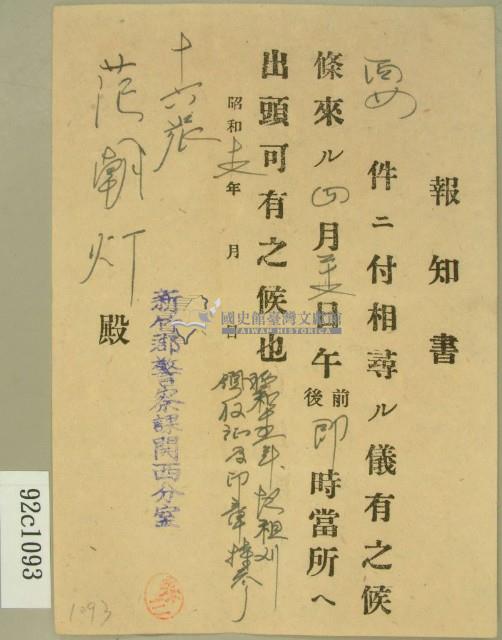 報知書
要件ニ付相尋ル儀有之候
條來ル四月 日午前後即時當所へ
出頭可有之候也
昭和 年 月 日
新竹郡警察課関西分室
十六張
范朝灯 殿
領收証及印章持参
國史館臺灣文獻館
TAIWAN HISTORICA
92c1093
1093